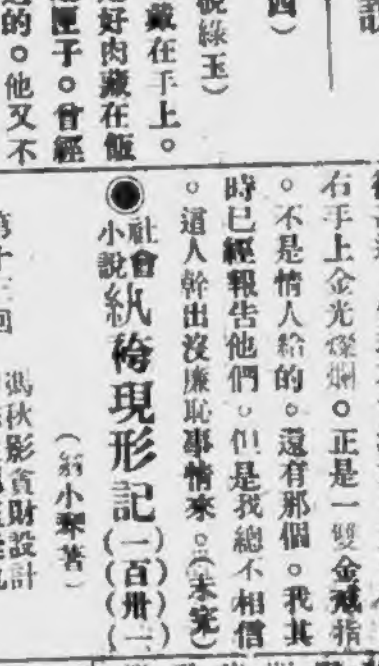 四)
說綠玉)
戴在手上。
好肉藏在飯
匣子。曾經
的。他又不
右手上金光燦爛。正是一雙金戒指
。不是情人給的。還有那個。我其
時已經報告他們。但是我總不相信
。道人幹出沒廉恥事情來。(未完)
◉社會小說 紈袴現形記(一百卅一)
(翁小琴著)
第十三回 馮秋影貪財設計